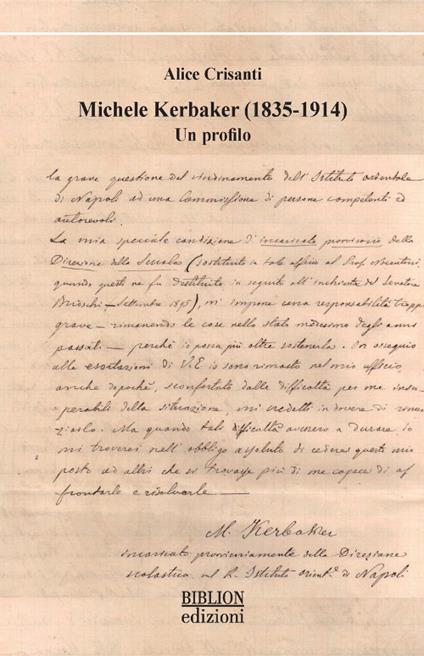 Alice Crisanti
Michele Kerbaker (1835-1914)
Un profilo
la grave questione del riordinamento dell'Istituto orientale
di Napoli ad una Commissione di persone competenti ed
autorevoli.
La mia speciale condizione d'incaricato provvisorio della
Direzione della Scuola (sostituito in tale ufficio al Prof.
quando questi ne fu destituito in seguito all'inchiesta del Senatore
Brioschi – Settembre 1895), mi impone una responsabilità troppo
grave – rimanendo le cose nello stato medesimo degli anni
passati – perchè io possa più oltre sostenerla. Per ossequio
alle esortazioni di V.E io sono rimasto nel mio ufficio,
anche dopochè, sconfortato dalle difficoltà per me insu-
perabili della situazione, mi credetti in dovere di rinun-
ziarlo. Ma quando tali difficoltà avessero a durare io
mi troverei nell'obbligo assoluto di cedere questo mio
posto ad altri che si trovasse più di me capace di af
frontarle e risolverle —
M. Kerbaker
incaricato provvisoriamente della Direzione
scolastica nel R. Istituto orient. di Napoli
BIBLION
edizioni